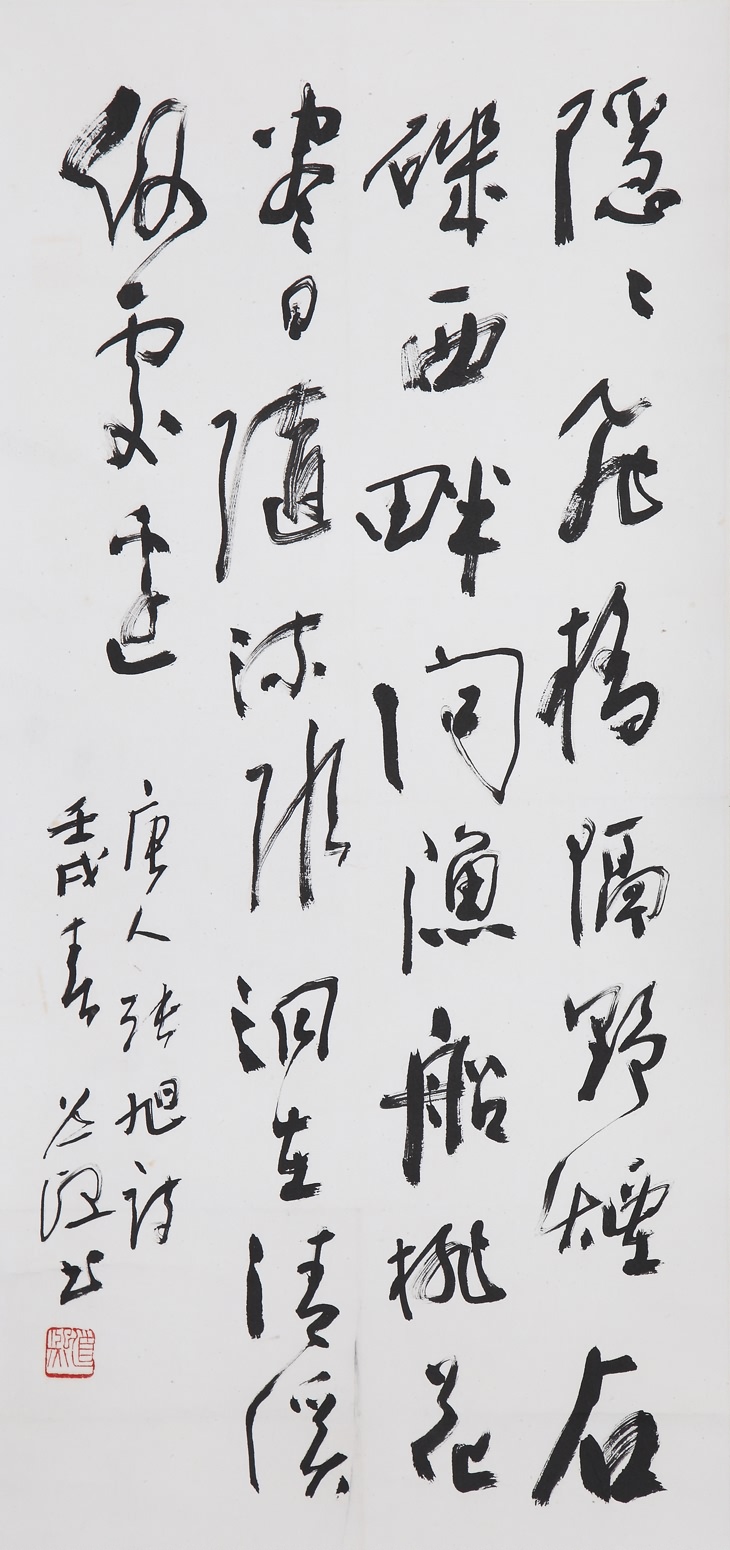 隱〻飛橋隔野煙石
磯西畔問漁船桃花
盡日隨流水洞在清溪
何處邊
唐人張旭詩
壬戌春 書